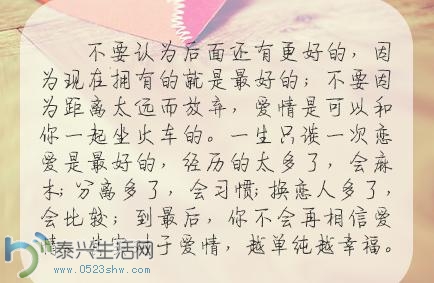 不要认为后面还有更好的，因
为现在拥有的就是最好的；不要因
为距离太远而放弃，爱情是可以和
你一起坐火车的。一生只谈一次恋
爱是最好的，经历的太多了，会麻
木；分离多了，会习惯；换恋人多了，
会比较；到最后，你不会再相信爱
于爱情，越单纯越幸福。
泰兴生活网
www.0523shw.com